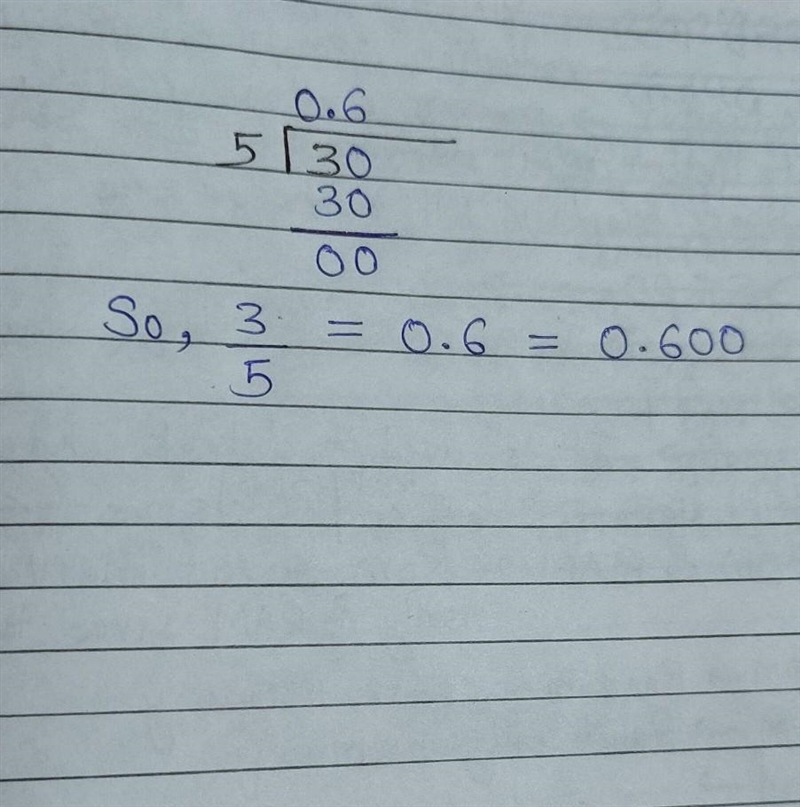 0.6
5 30
30
00
So, 3/5 = 0.6 = 0.600